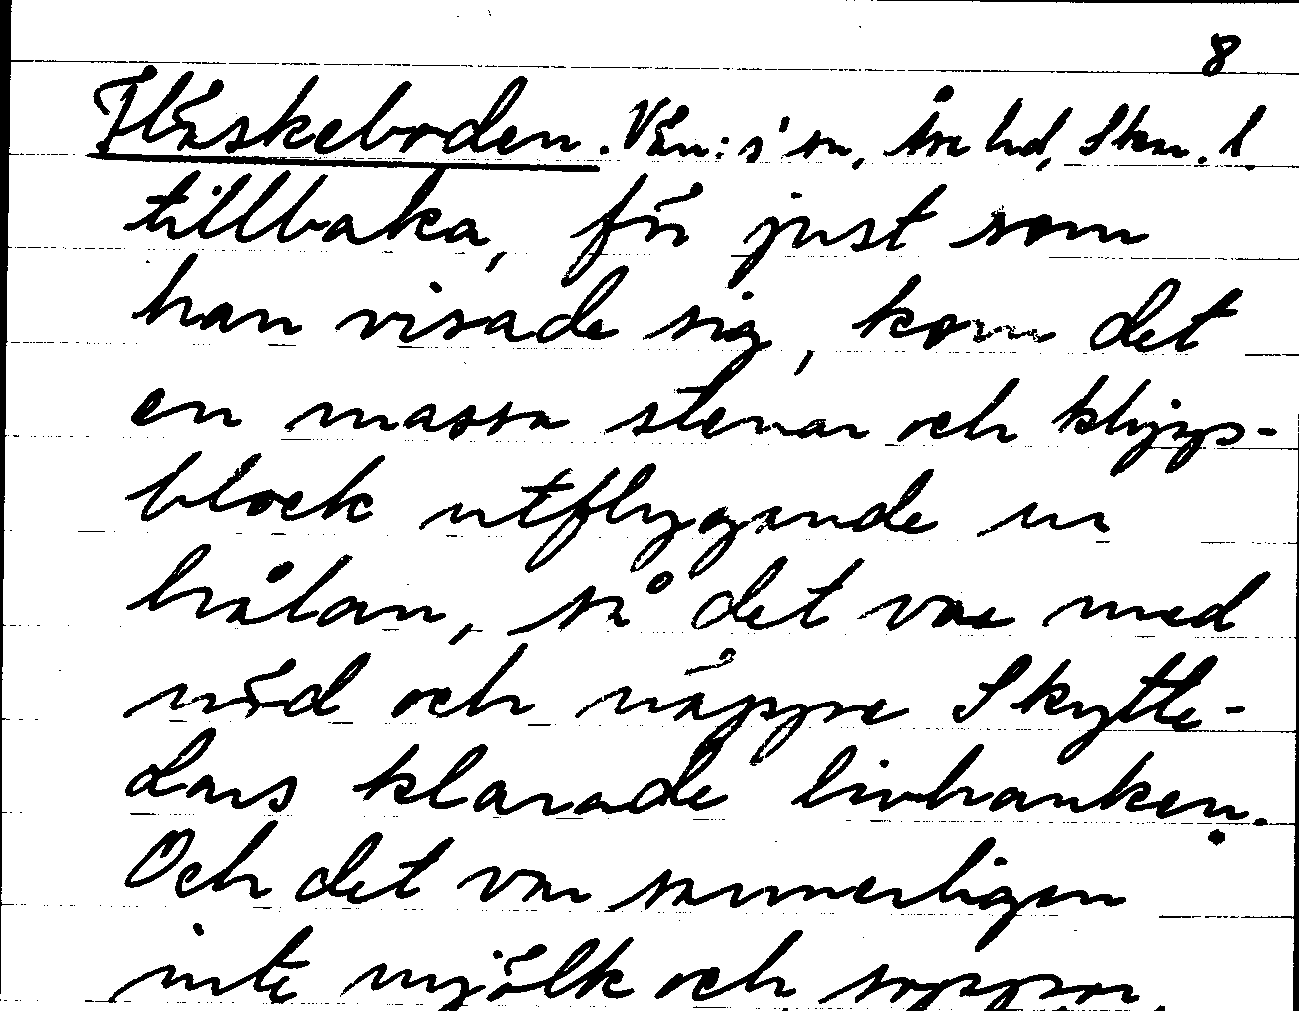 8
Fläskeboden. Vän: s'sn, Åse hd, Skar. l.
tillbaka, för just som
han visade sig, kom det
en massa stenar och klipp-
block utflygande ur
hålan, så det var med
nöd och näppe Skytte-
Lars klarade livhanken.
Och det var sannerligen
inte mjölk och soppor,